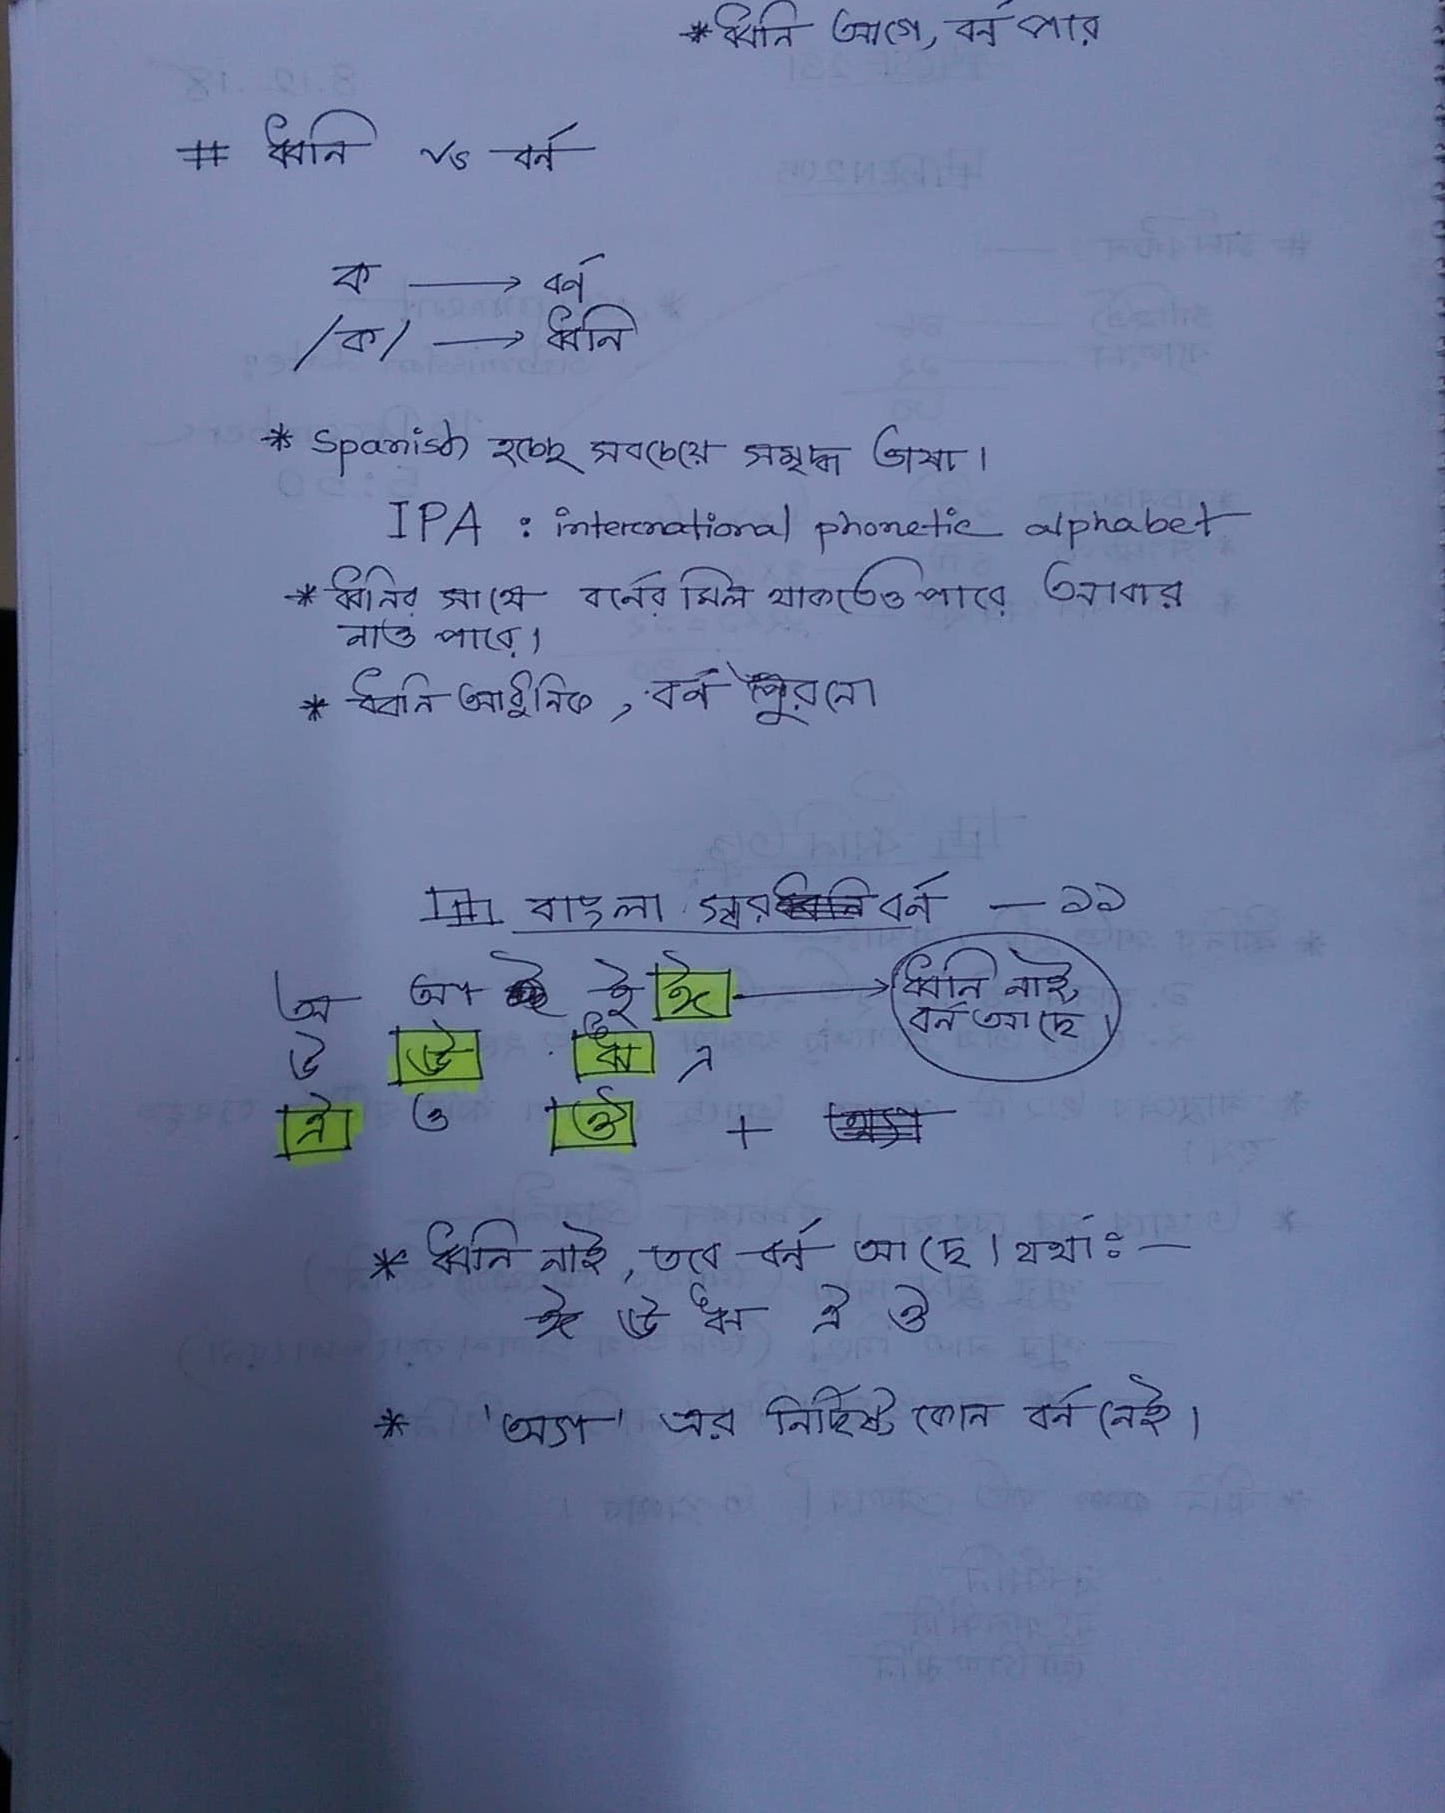 * ধ্বনি আগে, বর্ন পরে
# ধ্বনি vs বর্ন
ক → বর্ন
/ক/ → ধ্বনি
* Spanish হচ্ছে সবচেয়ে সমৃদ্ধ ভাষা।
IPA : international phonetic alphabet
* ধ্বনির সাথে বর্নের মিল থাকতেও পারে আবার
নাও পারে।
* ধ্বনি আধুনিক, বর্ন পুরনো
বাংলা স্বরবর্ন — ১১
অ আ ই ঈ → ধ্বনি নাই,
বর্ন আছে।
উ ঊ ঋ এ
ঐ ও ঔ +
* ধ্বনি নাই, তবে বর্ন আছে। যথাঃ—
ঈ ঊ ঋ ঐ ঔ
* 'অ্যা' এর নির্দিষ্ট কোন বর্ন নেই।